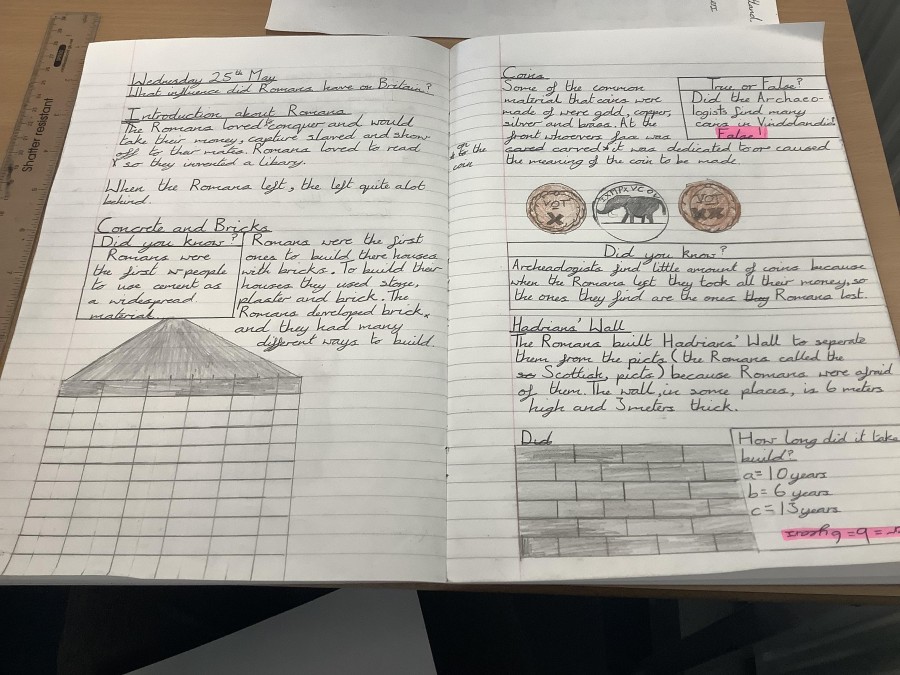 Wednesday 25th May
What influence did Romans have on Britain?
Introduction about Romans
The Romans loved to conquer and would
take their money, capture slaved and show
off to their mates. Romans loved to read
so they invented a library.
When the Romans left, the left quite alot
behind.
Concrete and Bricks
Did you know?
Romans were
the first people
to use cement as
a widespread
material.
Romans were the first
ones to build there houses
with bricks. To build their
houses they used stone,
plaster and brick. The
Romans developed brick,
and they had many
different ways to build.
Shatter resistant
Coins
Some of the common
material that coins were
made of were gold, copper,
silver and brass. At the
front whoevers face was
on
to the
coin
carved carved it was dedicated to or caused
the meaning of the coin to be made.
True or False?
Did the Archaeo-
logists find many
coins in Vindolandia?
False!
VOT
X
VOT
XX
Did you know?
Archeadogists find little amount of coins because
when the Romans left they took all their money, so
the ones they find are the ones they Romans lost.
Hadrians' Wall
The Romans built Hadrians' Wall to seperate
them from the picts (the Romans called the
so Scottish, picts) because Romans were afraid
of them. The wall, in some places, is 6 meters
high and 3 meters thick.
Did
How long did it take
build?
a = 10 years
b = 6 years
c = 13 years
= b = 6 years